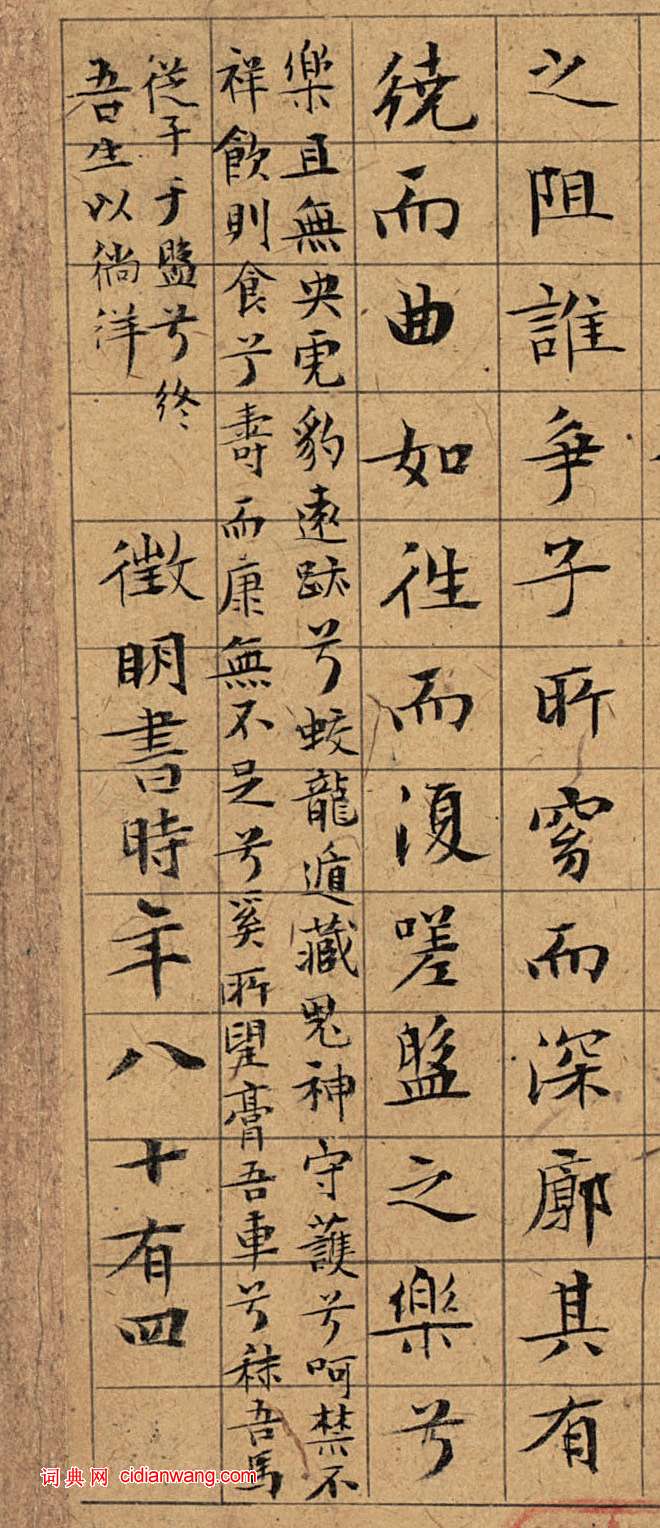 之阻誰爭子所窈而深廓其有
繞而曲如往而復嗟盤之樂兮
樂且無央虎豹遠跡兮蛟龍遁藏鬼神守護兮呵禁不
祥飲則食兮壽而康無不足兮奚所望膏吾車兮秣吾馬
從子于盤兮終
吾生以徜徉
徵明書時年八十有四
词典网 cidianwang.com